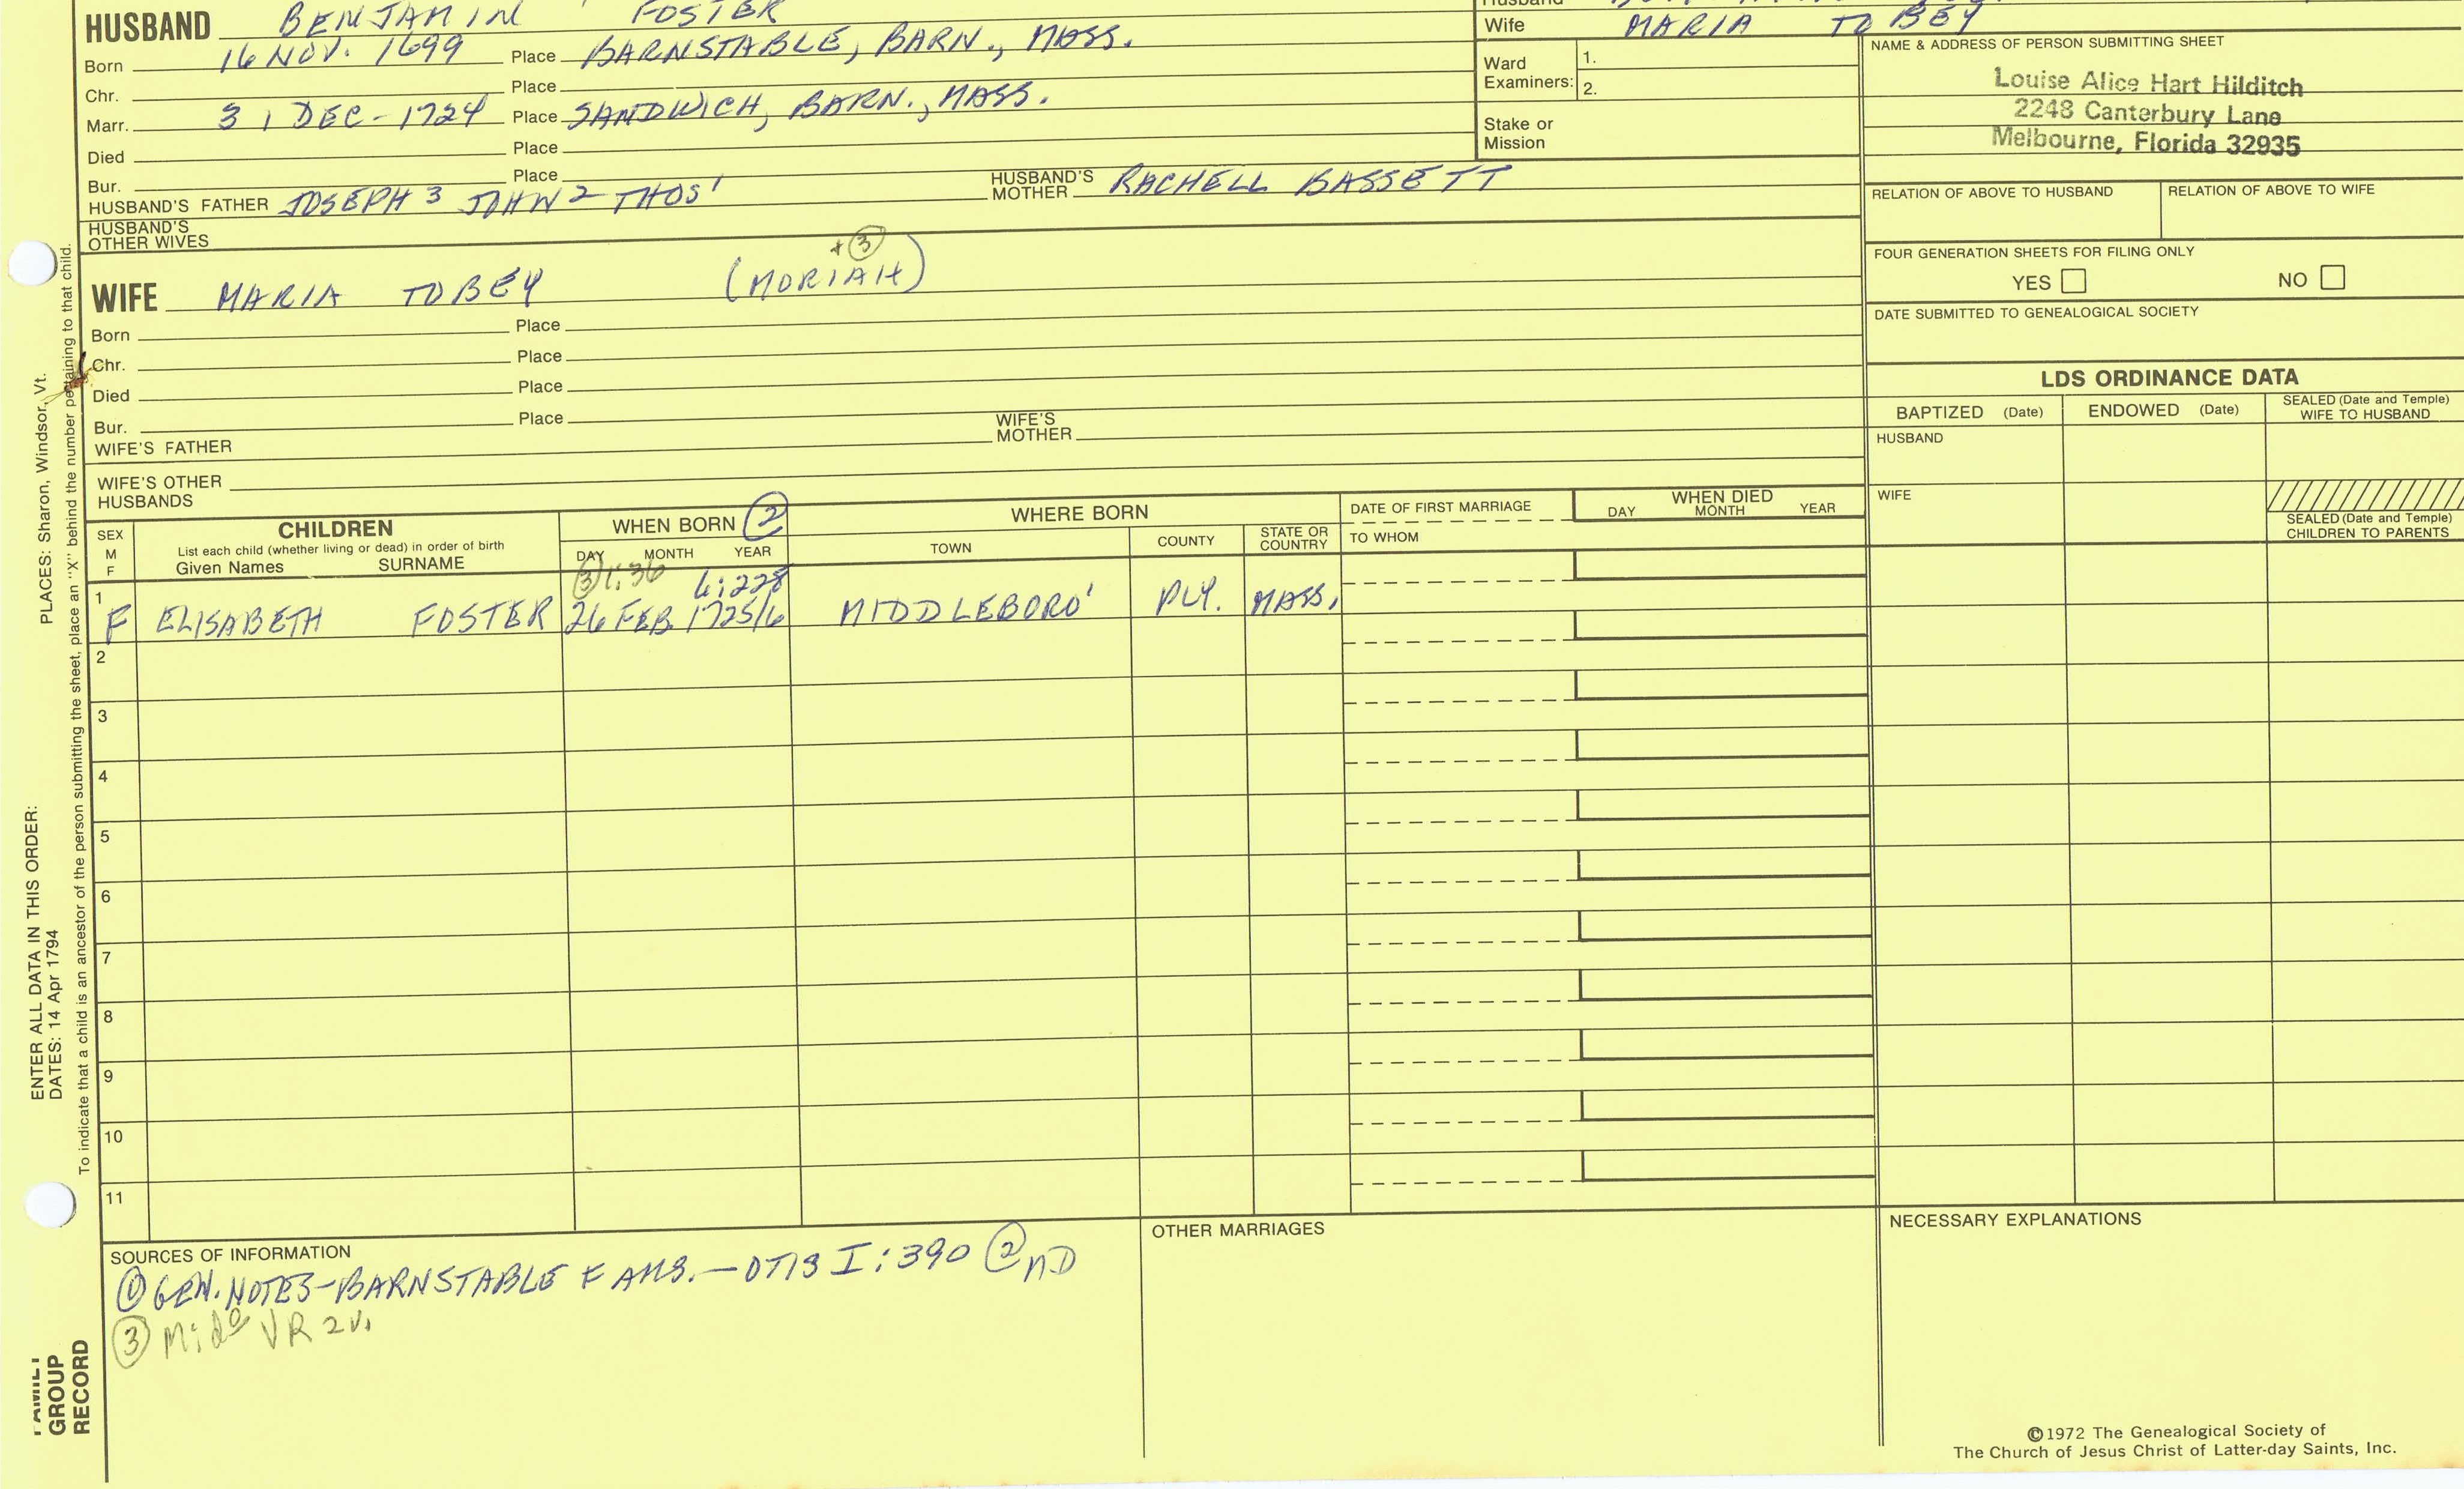 HUSBAND BENJAMIN FOSTER
Born 16 NOV. 1699 Place BARNSTABLE, BARN., MASS.
Chr. Place
Marr. 31 DEC - 1724 Place SANDWICH, BARN., MASS.
Died Place
Bur. Place
HUSBAND'S FATHER JOSEPH 3 JOHN 2 THOS 1 HUSBAND'S MOTHER RACHELL BASSETT
HUSBAND'S OTHER WIVES
Husband
Wife MARIA TOBEY
Ward Examiners: 1.
2.
Stake or Mission
NAME & ADDRESS OF PERSON SUBMITTING SHEET
Louise Alice Hart Hilditch
2248 Canterbury Lane
Melbourne, Florida 32935
RELATION OF ABOVE TO HUSBAND RELATION OF ABOVE TO WIFE
FOUR GENERATION SHEETS FOR FILING ONLY
YES NO
DATE SUBMITTED TO GENEALOGICAL SOCIETY
+ 3
WIFE MARIA TOBEY (MORIAH)
Born Place
Chr. Place
Died Place
Bur. Place
WIFE'S FATHER WIFE'S MOTHER
WIFE'S OTHER HUSBANDS
LDS ORDINANCE DATA
BAPTIZED (Date) ENDOWED (Date) SEALED (Date and Temple) WIFE TO HUSBAND
HUSBAND
WIFE
SEALED (Date and Temple) CHILDREN TO PARENTS
SEX M F
CHILDREN
List each child (whether living or dead) in order of birth
Given Names SURNAME
WHEN BORN 2
DAY MONTH YEAR
WHERE BORN
TOWN COUNTY STATE OR COUNTRY
DATE OF FIRST MARRIAGE
TO WHOM
WHEN DIED
DAY MONTH YEAR
3 1:36 4:228
1 F ELISABETH FOSTER 26 FEB 1725/6 MIDDLEBORO' PLY. MASS.
2
3
4
5
6
7
8
9
10
11
SOURCES OF INFORMATION
1 GEN. NOTES-BARNSTABLE FAMS.-OTIS I:390 2 MD
3 Mido VR 2v.
OTHER MARRIAGES
NECESSARY EXPLANATIONS
©1972 The Genealogical Society of
The Church of Jesus Christ of Latter-day Saints, Inc.
ENTER ALL DATA IN THIS ORDER:
DATES: 14 Apr 1794 PLACES: Sharon, Windsor, Vt.
To indicate that a child is an ancestor of the person submitting the sheet, place an "X" behind the number pertaining to that child.
FAMILY
GROUP
RECORD